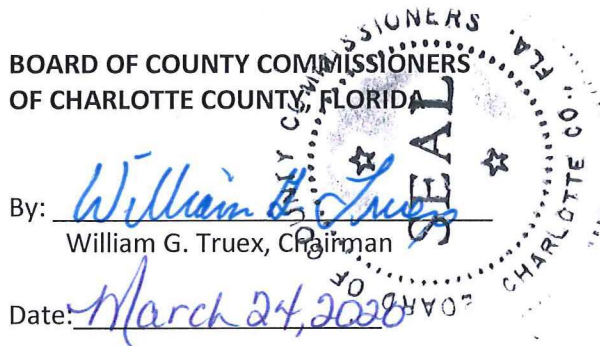 BOARD OF COUNTY COMMISSIONERS
OF CHARLOTTE COUNTY, FLORIDA
By: William G Truex
William G. Truex, Chairman
Date: March 24, 2020
BOARD OF COUNTY COMMISSIONERS
CHARLOTTE CO., FLA.
SEAL